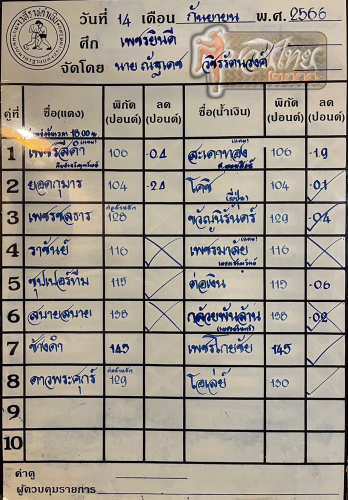 วันที่ 14 เดือน กันยายน พ.ศ. 2566
ศึก เพชรยินดี
จัดโดย นาย ณัฐเดช วชิรรัตนวงศ์
คู่ที่ ชื่อ(แดง) พิกัด (ปอนด์) ลด (ปอนด์) ชื่อ(น้ำเงิน) พิกัด (ปอนด์) ลด (ปอนด์)
1 เพชรสีดำ 106 -0.4 สะเดาทอง 106 -1.9
2 ยอดกุมาร 104 -2.0 โคคิ (ญี่ปุ่น) 104 -0.1
3 เพชรชลธาร 128 ขวัญนิรันดร์ 129 -0.4
4 ราชันย์ 116 เพชรมาลัย 116
5 ซุปเปอร์ทีม 115 ต่อเงิน 115 -0.6
6 สบายสบาย 138 กล้วยพันล้าน 138 -0.2
7 ช้างดำ 145 เพชรโกยชัย 145
8 ดาวพระศุกร์ 129 โอเล่ย์ 130
9
10
ค่าดู
ผู้ควบคุมรายการ